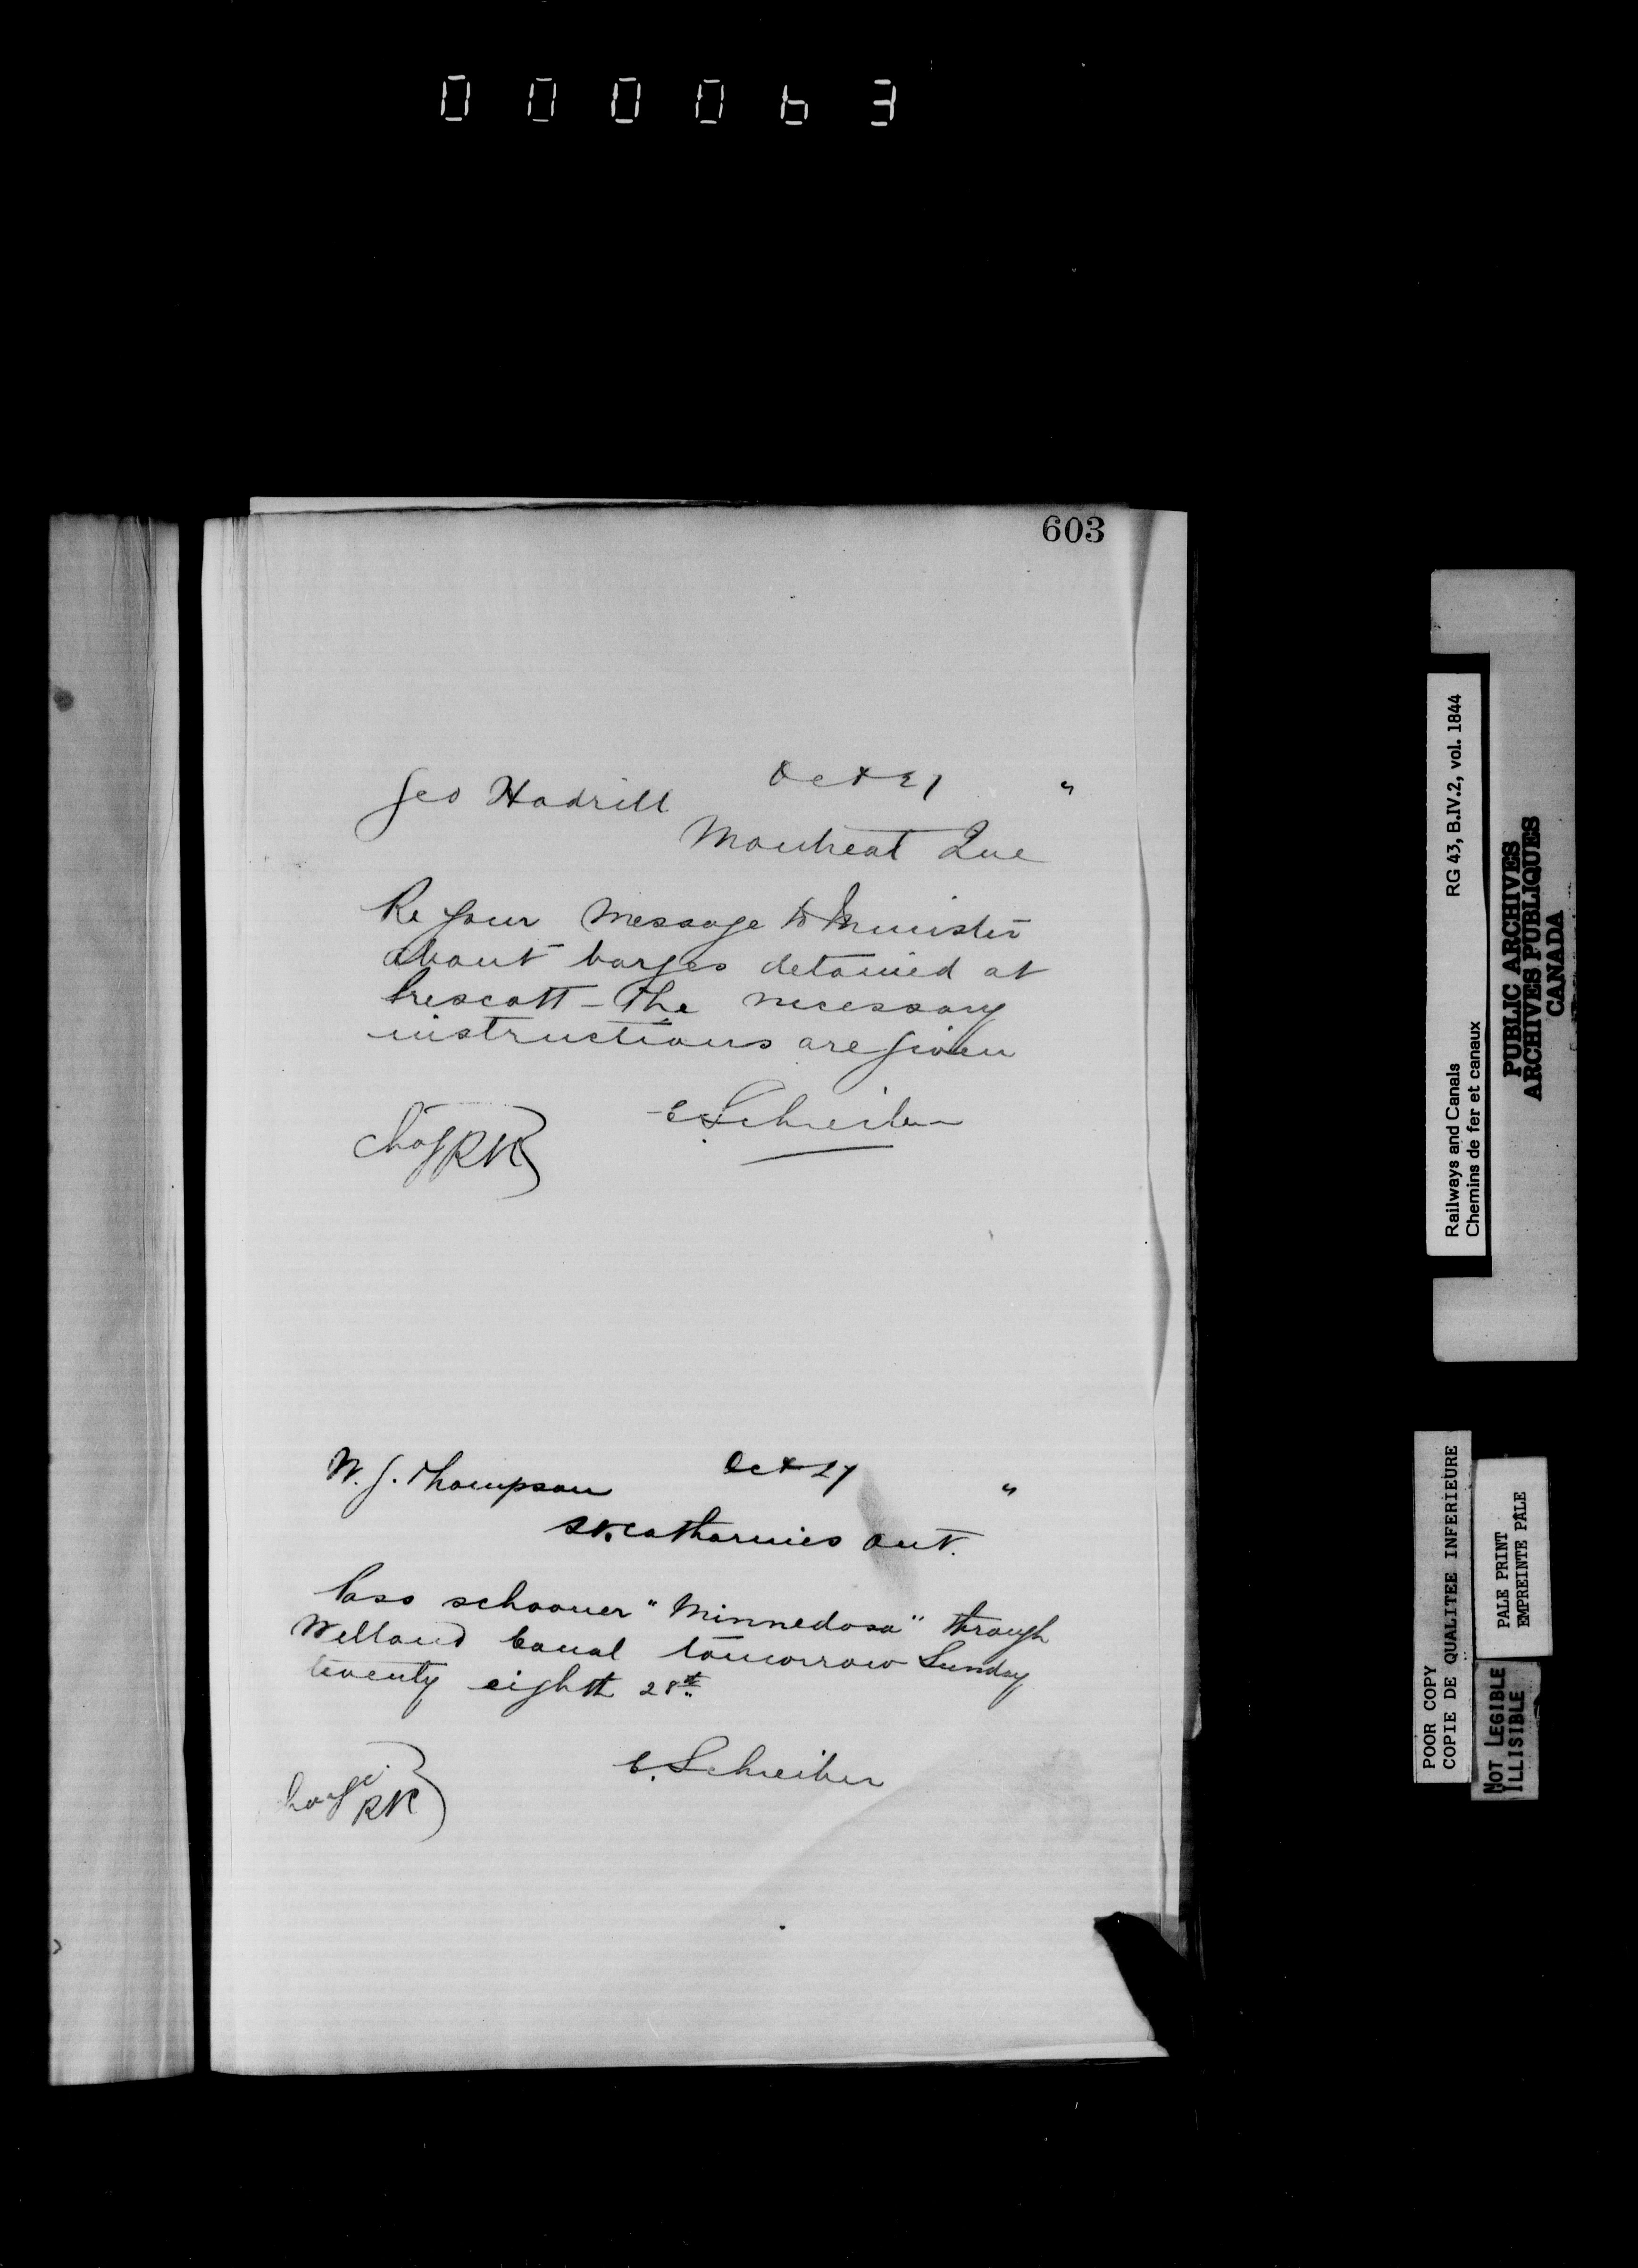 000063
603
Oct 27 "
Geo Hadrill
Montreal Que
Re your message to Minister
about barges detained at
Prescott - The necessary
instructions are given
C. Schreiber
Chg RK
Oct 27 "
W. J. Thompson
St. Catharines Ont.
Pass schooner "Minnedosa" through
Welland Canal tomorrow Sunday
twenty eighth 28th
C. Schreiber
Charge RK
Railways and Canals RG 43, B.IV.2, vol. 1844
Chemins de fer et canaux
PUBLIC ARCHIVES
ARCHIVES PUBLIQUES
CANADA
POOR COPY
COPIE DE QUALITEE INFERIEURE
PALE PRINT
EMPREINTE PALE
NOT LEGIBLE
ILLISIBLE